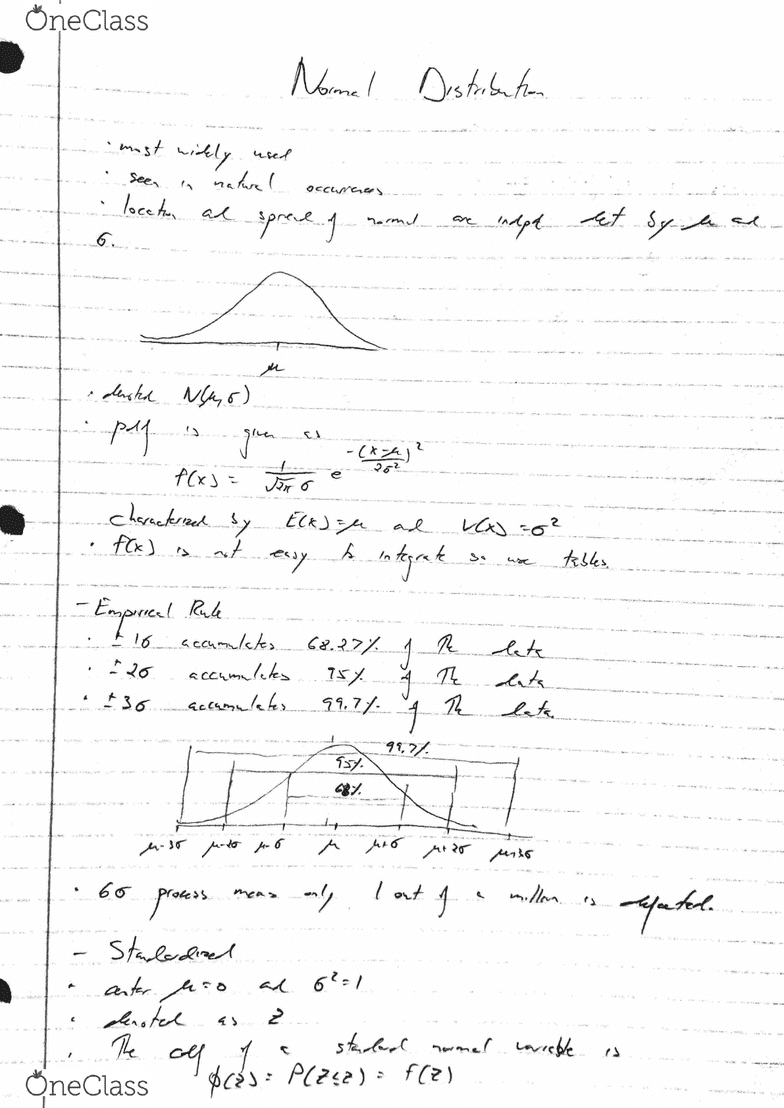 OneClass
Normal Distribution
· most widely used
· seen in natural occurrences
· location and spread of normal are indpd det by μ and
σ.
μ
· denoted N(μ,σ)
· pdf is given as
f(x) = 1/√2π σ e^-(x-μ)²/2σ²
characterized by E(x)=μ and V(x)=σ²
· f(x) is not easy to integrate so use tables.
- Empirical Rule
· ±1σ accumulates 68.27% of the data
· ±2σ accumulates 95% of the data
· ±3σ accumulates 99.7% of the data.
99.7%
95%
68%
μ-3σ μ-2σ μ-σ μ μ+σ μ+2σ μ+3σ
· 6σ process means only 1 out of a million is defected.
- Standardized
· center μ=0 and σ²=1
· denoted as Z
· The cdf of a standard normal variable is
φ(z) = P(Z≤z) = F(z)
OneClass